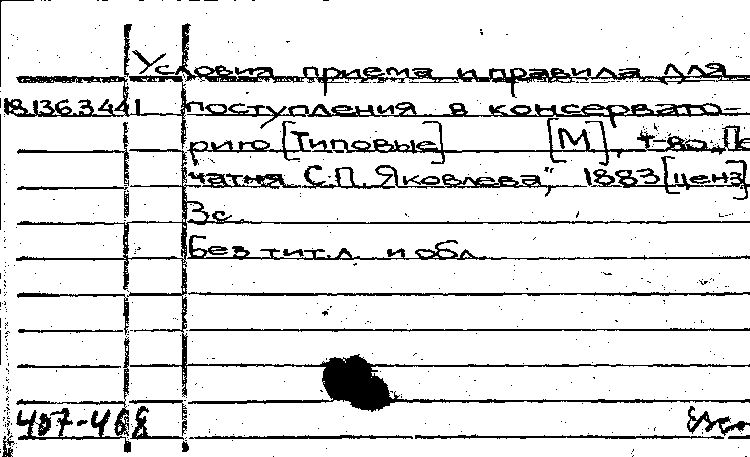 Условия приема и правила для
18.136.3.441 поступления в консервато-
рию [Типовые] [М], т-во „Пе
чатня С.П. Яковлева", 1883 [ценз]
3с.
Без тит.л. и обл.
407-468